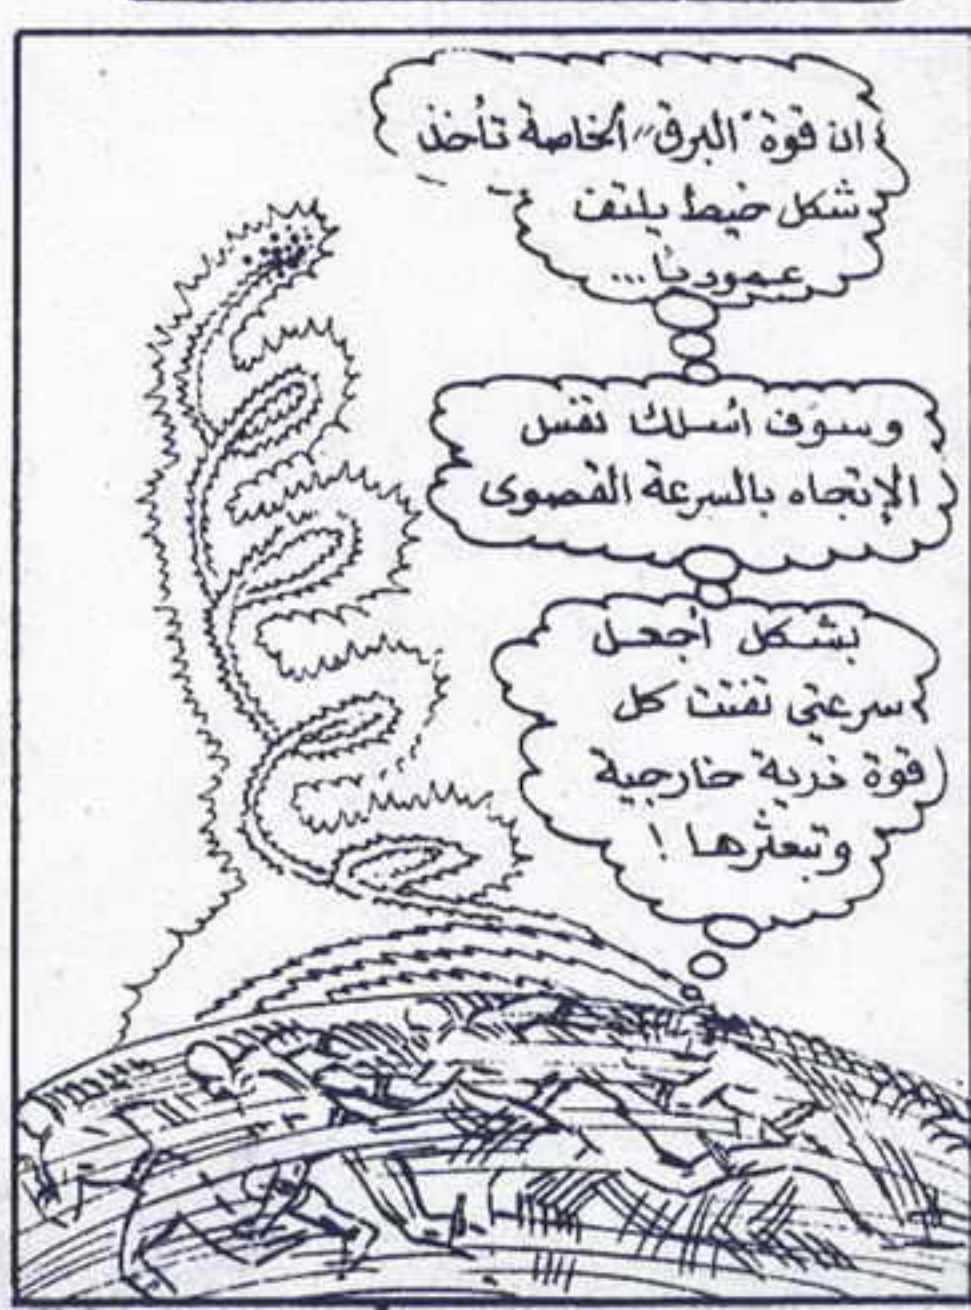 ان قوة "البرق" الخاصة تأخذ
شكل خيط يلتف
عموديًا...
وسوف أسلك نفس
الإتجاه بالسرعة القصوى
بشكل أجعل
سرعتي تفتت كل
قوة ذرية خارجية
وتبعثرها !